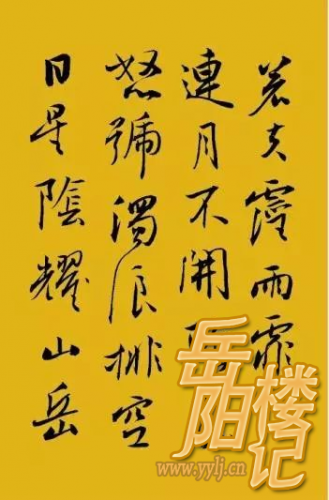 若夫霪雨霏
連月不開
怒號濁浪排空
日星隱耀山岳
岳阳楼记
www.yylj.cn